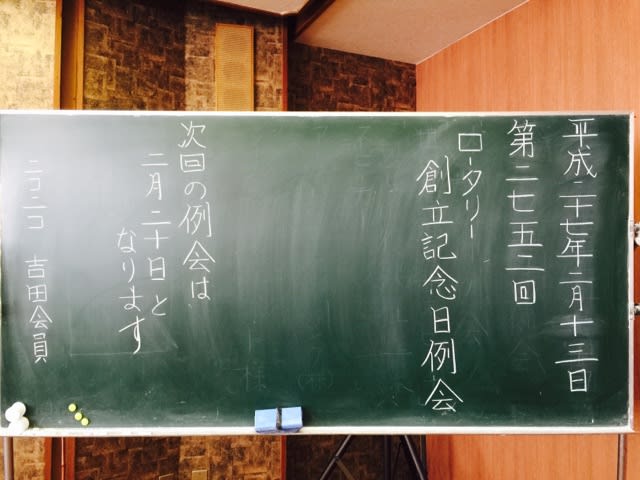 平成二十七年二月十三日
第二七五二回
ロータリー
創立記念日例会
次回の例会は
二月二十日と
なります
ニコニコ 吉田会員